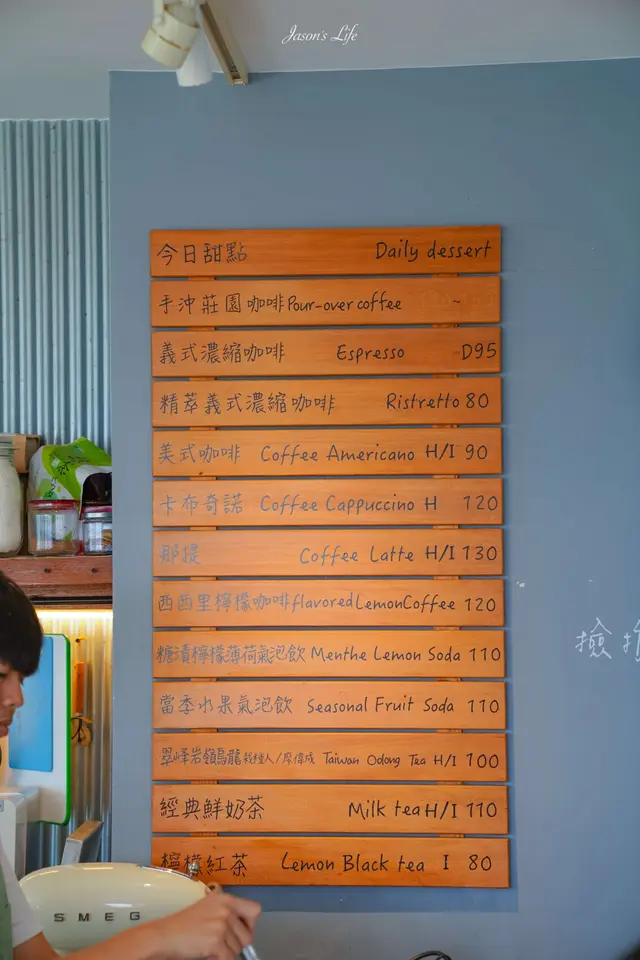 Jason's Life
今日甜點 Daily dessert
手沖莊園咖啡 Pour-over coffee ~
義式濃縮咖啡 Espresso D95
精萃義式濃縮咖啡 Ristretto 80
美式咖啡 Coffee Americano H/I 90
卡布奇諾 Coffee Cappuccino H 120
那提 Coffee Latte H/I 130
西西里檸檬咖啡 flavored Lemon Coffee 120
糖漬檸檬薄荷氣泡飲 Menthe Lemon Soda 110
當季水果氣泡飲 Seasonal Fruit Soda 110
翠峰岩嶺烏龍 栽種人/廖偉成 Taiwan Oolong Tea H/I 100
經典鮮奶茶 Milk tea H/I 110
檸檬紅茶 Lemon Black tea I 80
撿
SMEG